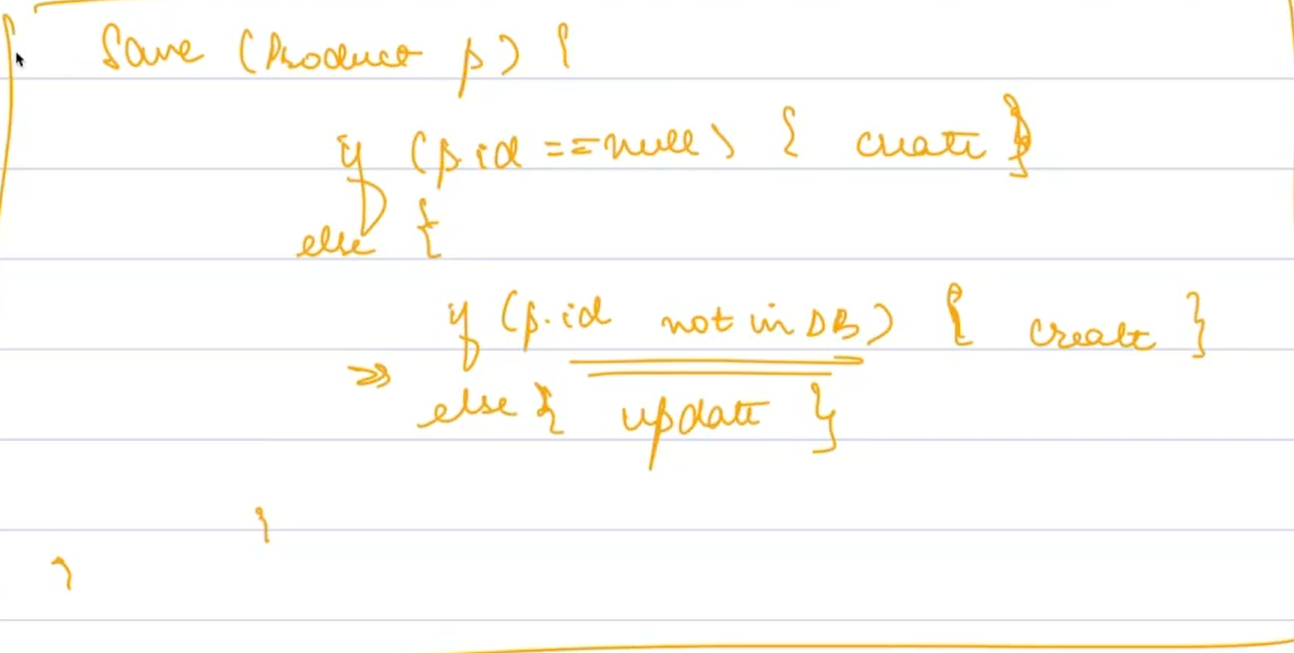 Save (Product p) {
if (p.id == null) { create }
else {
if (p.id not in DB) { create }
>> else { update }
}
}